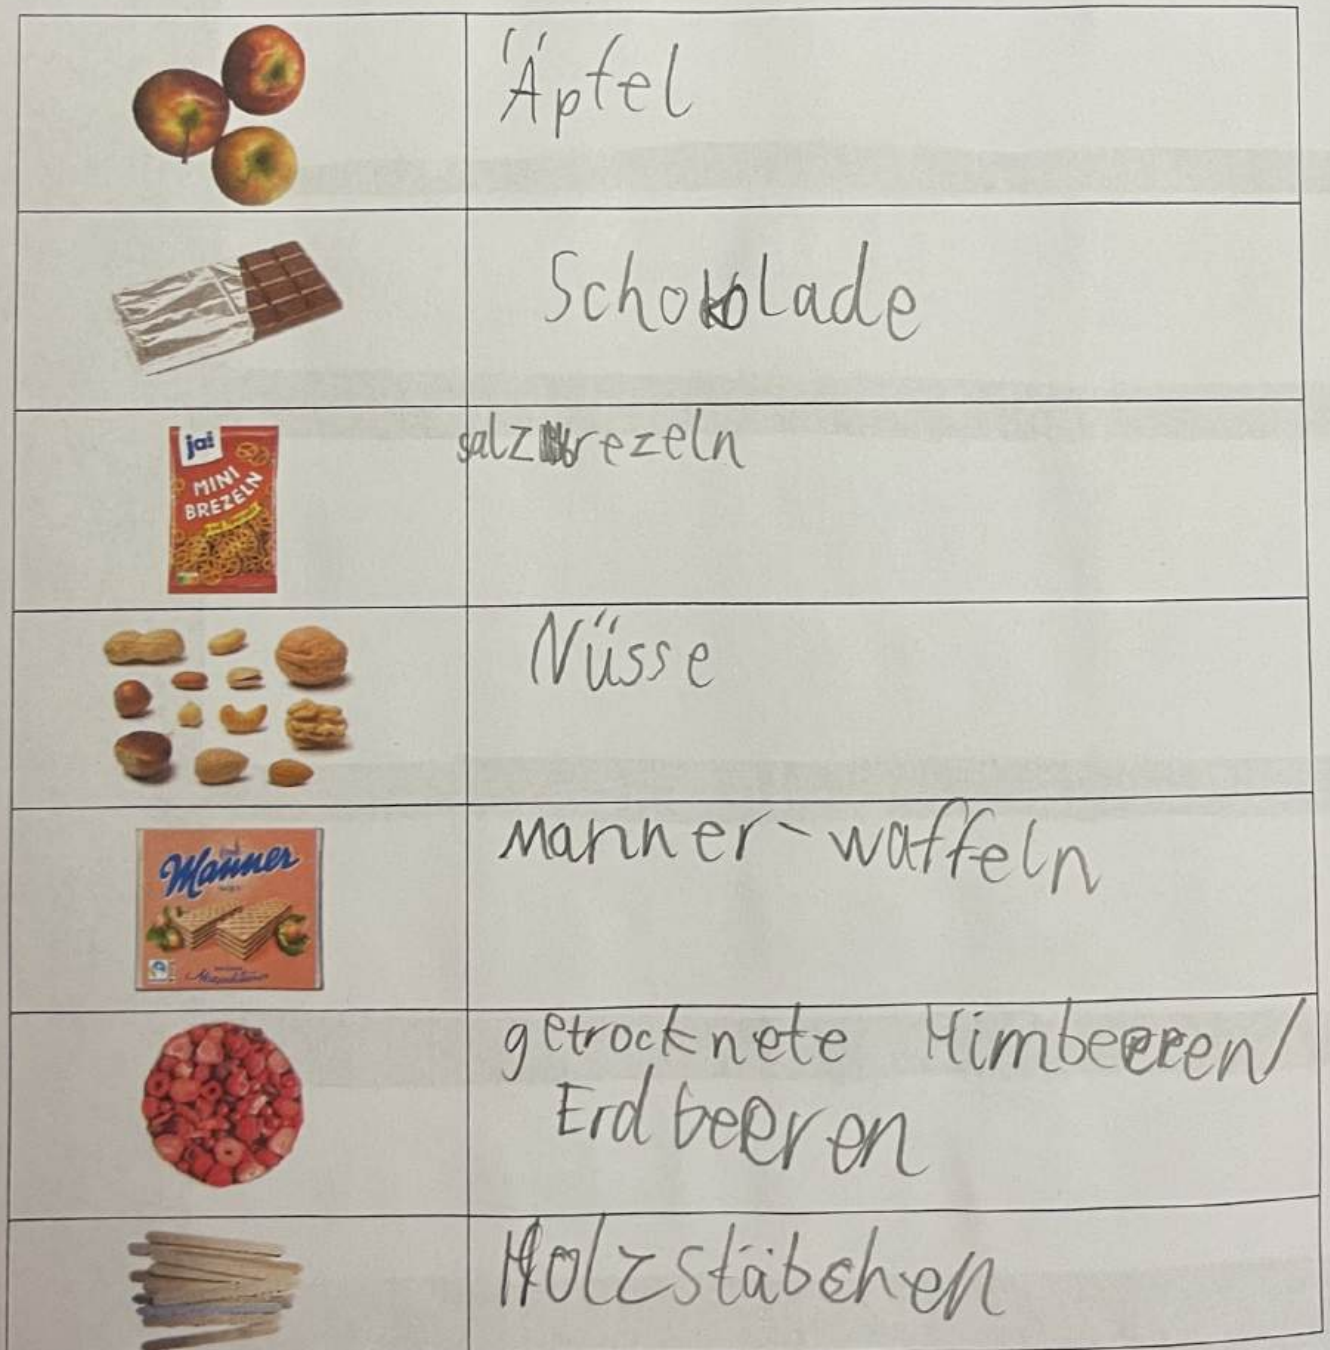 Äpfel
Schokolade
ja!
MINI
BREZELN
salzbrezeln
Nüsse
Manner
manner-waffeln
getrocknete Himbeeren/
Erdbeeren
Holzstäbchen